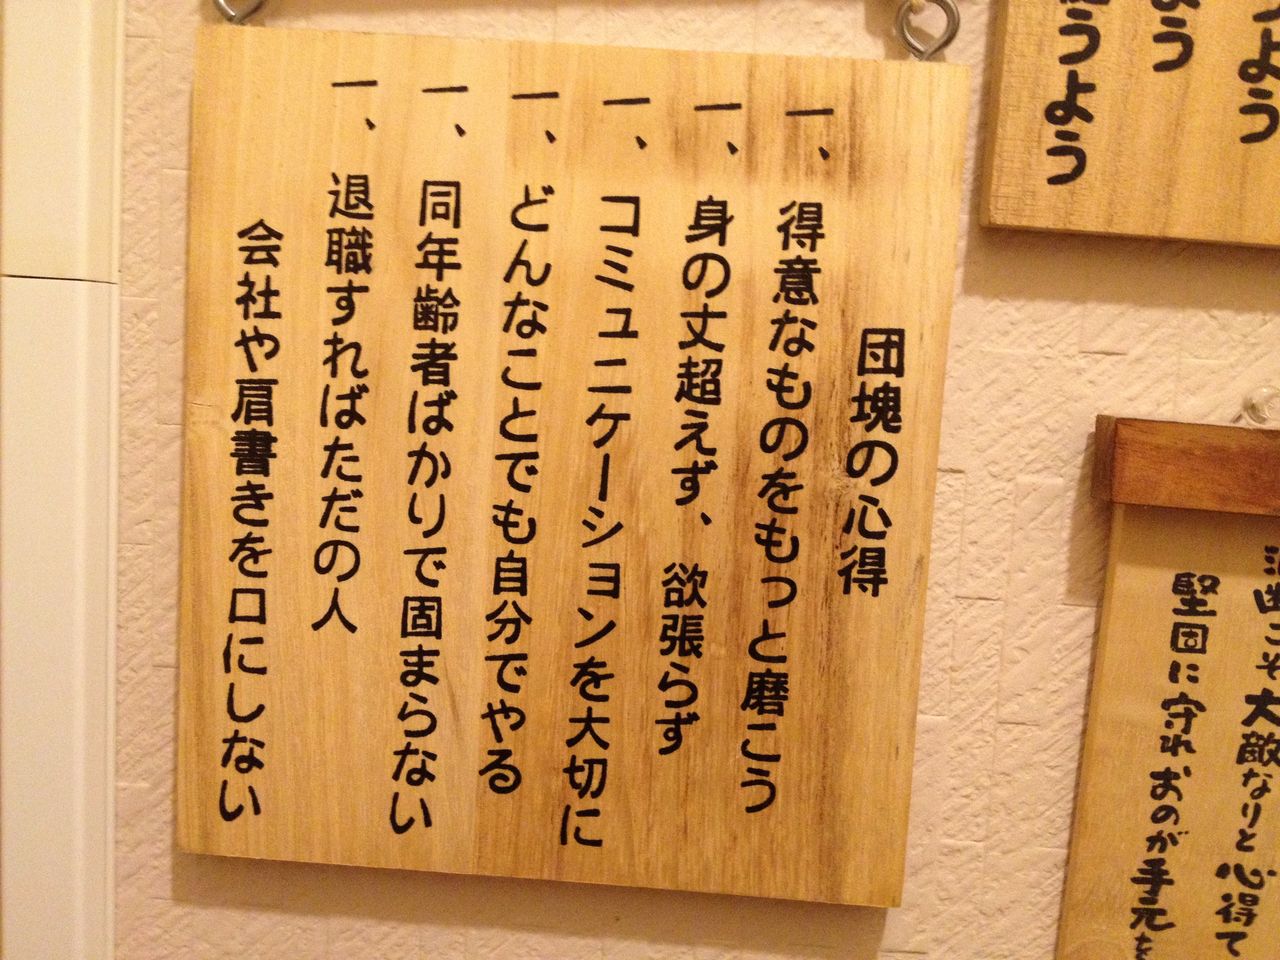 団塊の心得
一、得意なものをもっと磨こう
一、身の丈超えず、欲張らず
一、コミュニケーションを大切に
一、どんなことでも自分でやる
一、同年齢者ばかりで固まらない
一、退職すればただの人
会社や肩書きを口にしない
よう
う
うよう
こそ大敵なりと心得て
堅固に守れおのが手元を